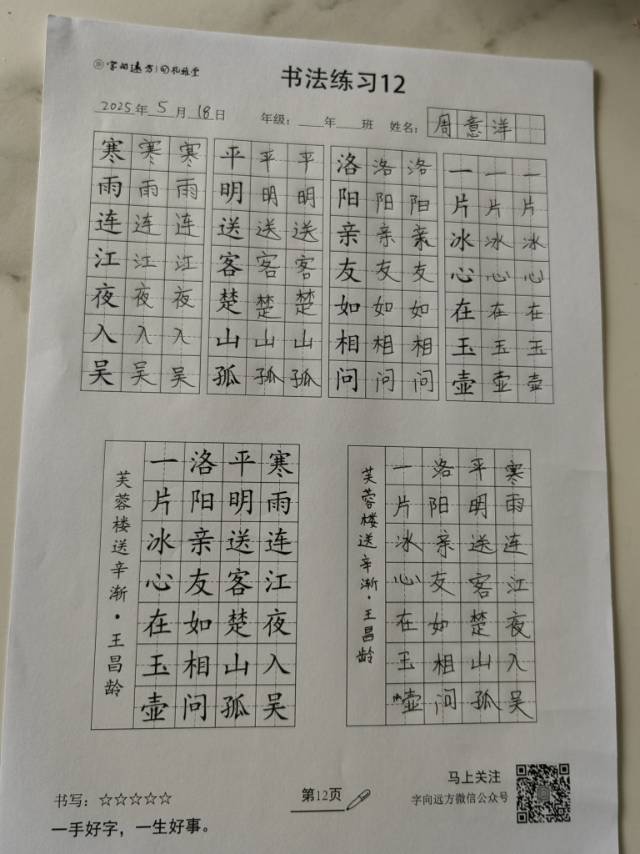 字向远方
书法练习12
2025年5月18日 年级:____年____班 姓名:周意洋
寒寒寒 平平平 洛洛洛 一一一
雨雨雨 明明明 阳阳阳 片片片
连连连 送送送 亲亲亲 冰冰冰
江江江 客客客 友友友 心心心
夜夜夜 楚楚楚 如如如 在在在
入入入 山山山 相相相 玉玉玉
吴吴吴 孤孤孤 问问问 壶壶壶
芙蓉楼送辛渐·王昌龄
寒雨连江夜入吴
平明送客楚山孤
洛阳亲友如相问
一片冰心在玉壶
芙蓉楼送辛渐·王昌龄
寒雨连江夜入吴
平明送客楚山孤
洛阳亲友如相问
一片冰心在玉壶
书写:☆☆☆☆☆
一手好字,一生好事。
第12页
马上关注
字向远方微信公众号